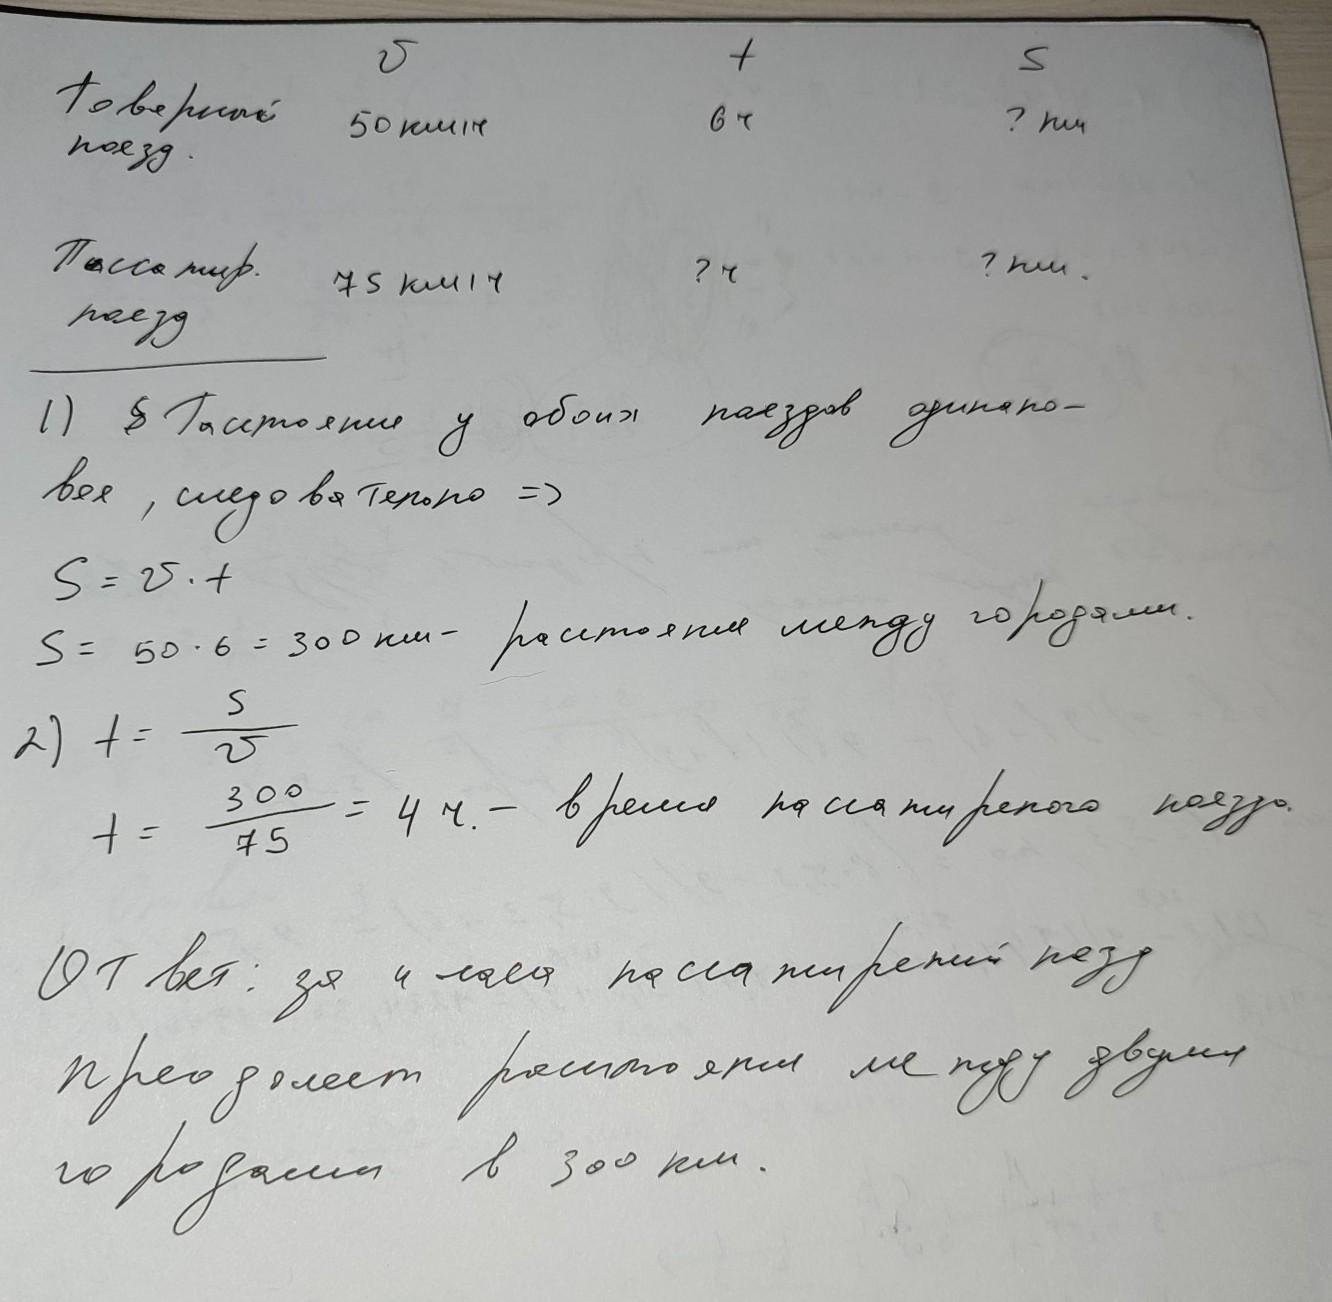 v t s
Товарный 50 км/ч 6 ч ? км
поезд.
Пассажир. 75 км/ч ? ч ? км.
поезд
1) Расстояние у обоих поездов одинако-
вое, следовательно =>
S = v · t
S = 50 · 6 = 300 км - расстояние между городами.
2) t = s / v
t = 300 / 75 = 4 ч. - время пассажирского поезда.
Ответ: за 4 часа пассажирский поезд
преодолеет расстояние между двумя
городами в 300 км.